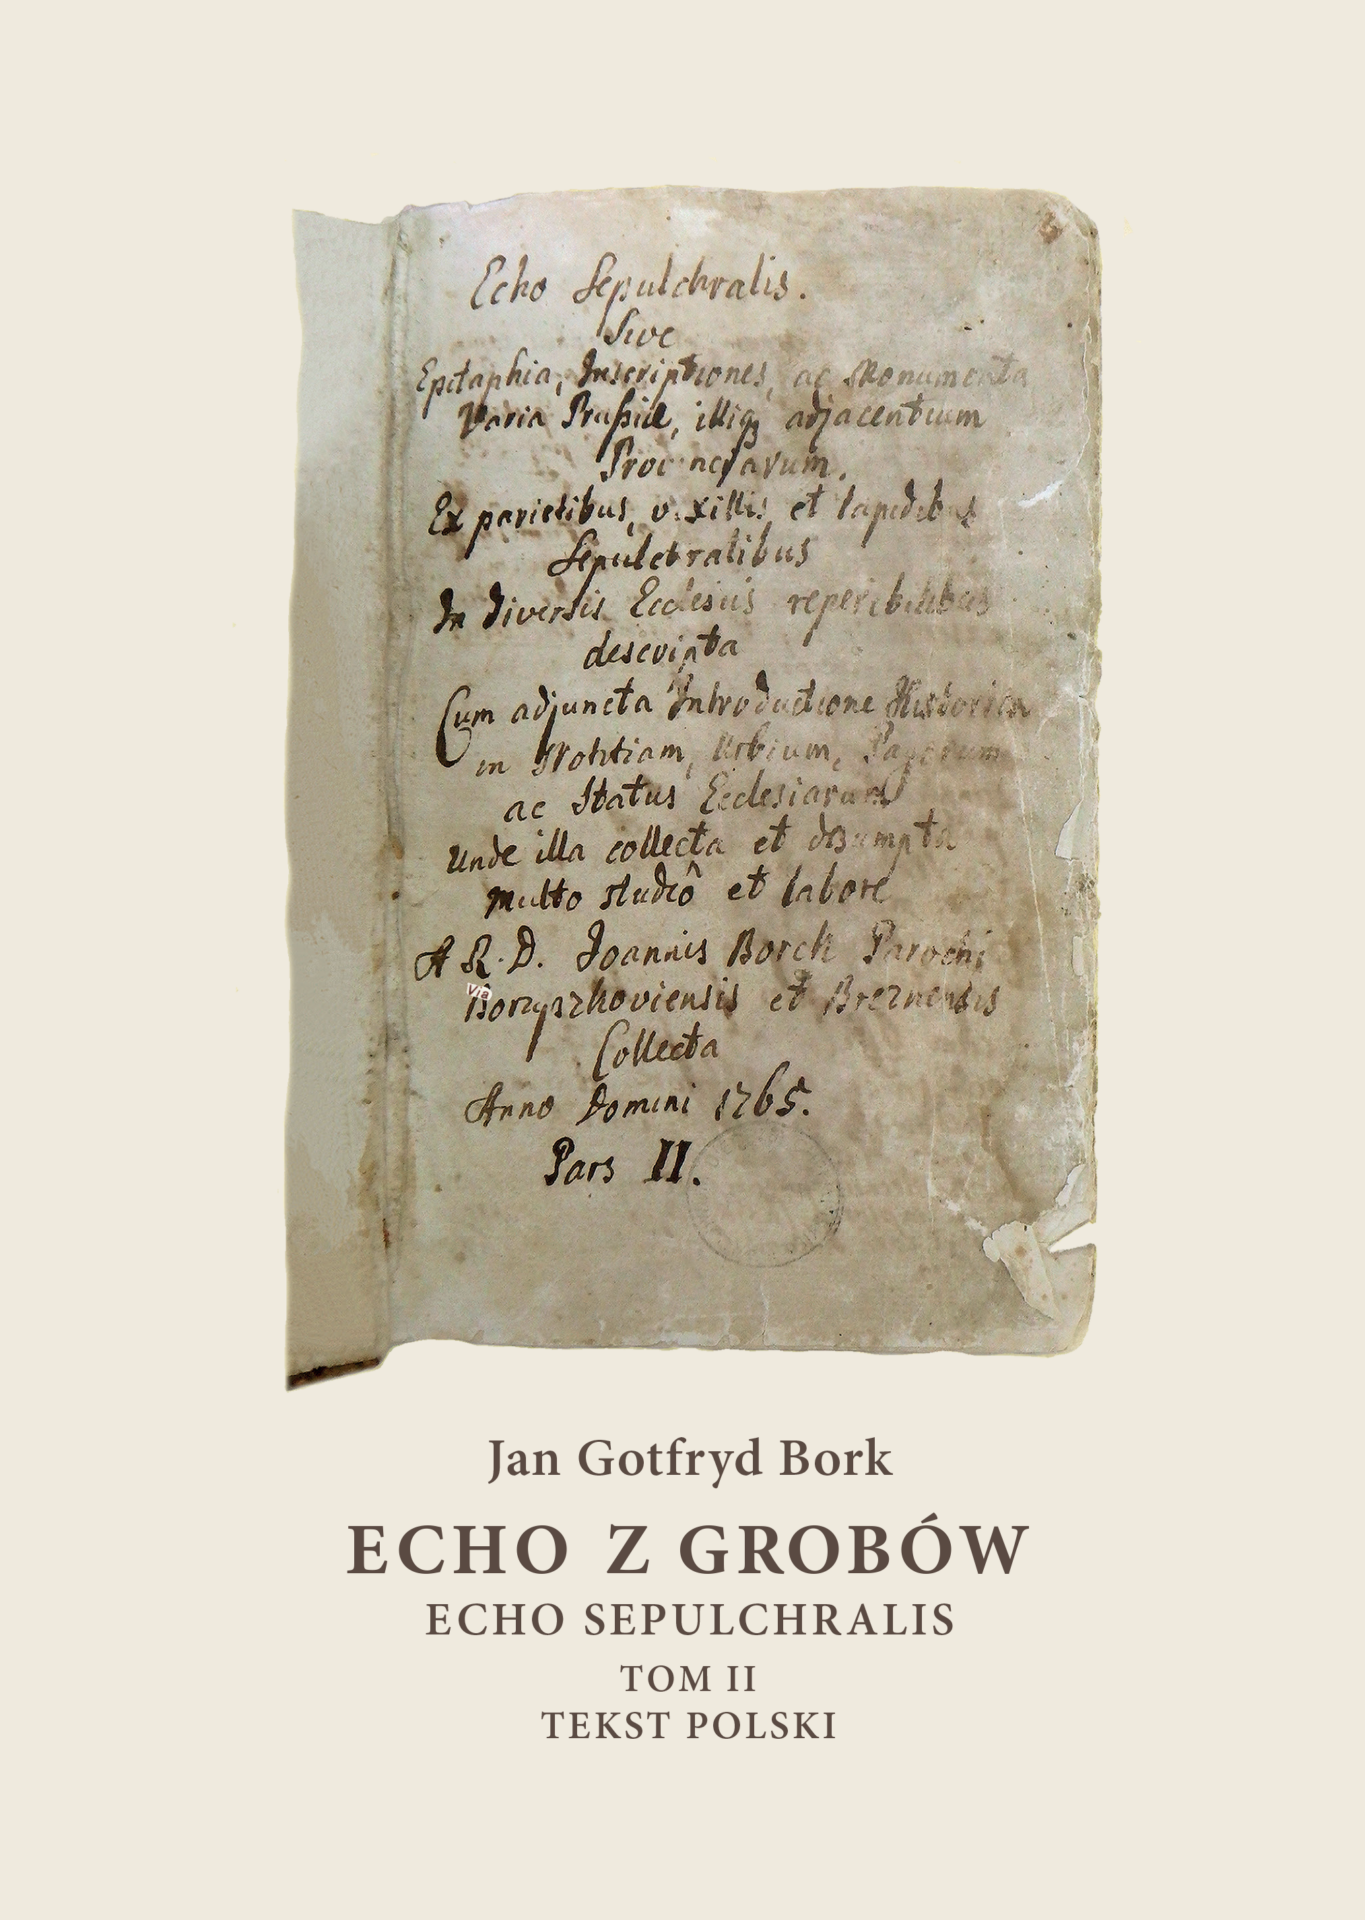 Echo Sepulchralis.
Sive
Epitaphia, Inscriptiones, ac Monumenta
Varia Prußiæ, illiq₃ adjacentium
Provinciarum.
Ex parietibus, vexillis et lapidibus
Sepulchralibus
In diversis Ecclesiis reperibilibus
descripta
Cum adjuncta Introductione Historica
in Notitiam, Urbium, Pagorum
ac Status Ecclesiarum
Unde illa collecta et
multo studiô et labore
A R. D. Joannis Borck Parochi
Via
Borzyszkoviensis et Breznensis
Collecta
Anno Domini 1765.
Pars II.
Jan Gotfryd Bork
ECHO Z GROBÓW
ECHO SEPULCHRALIS
TOM II
TEKST POLSKI